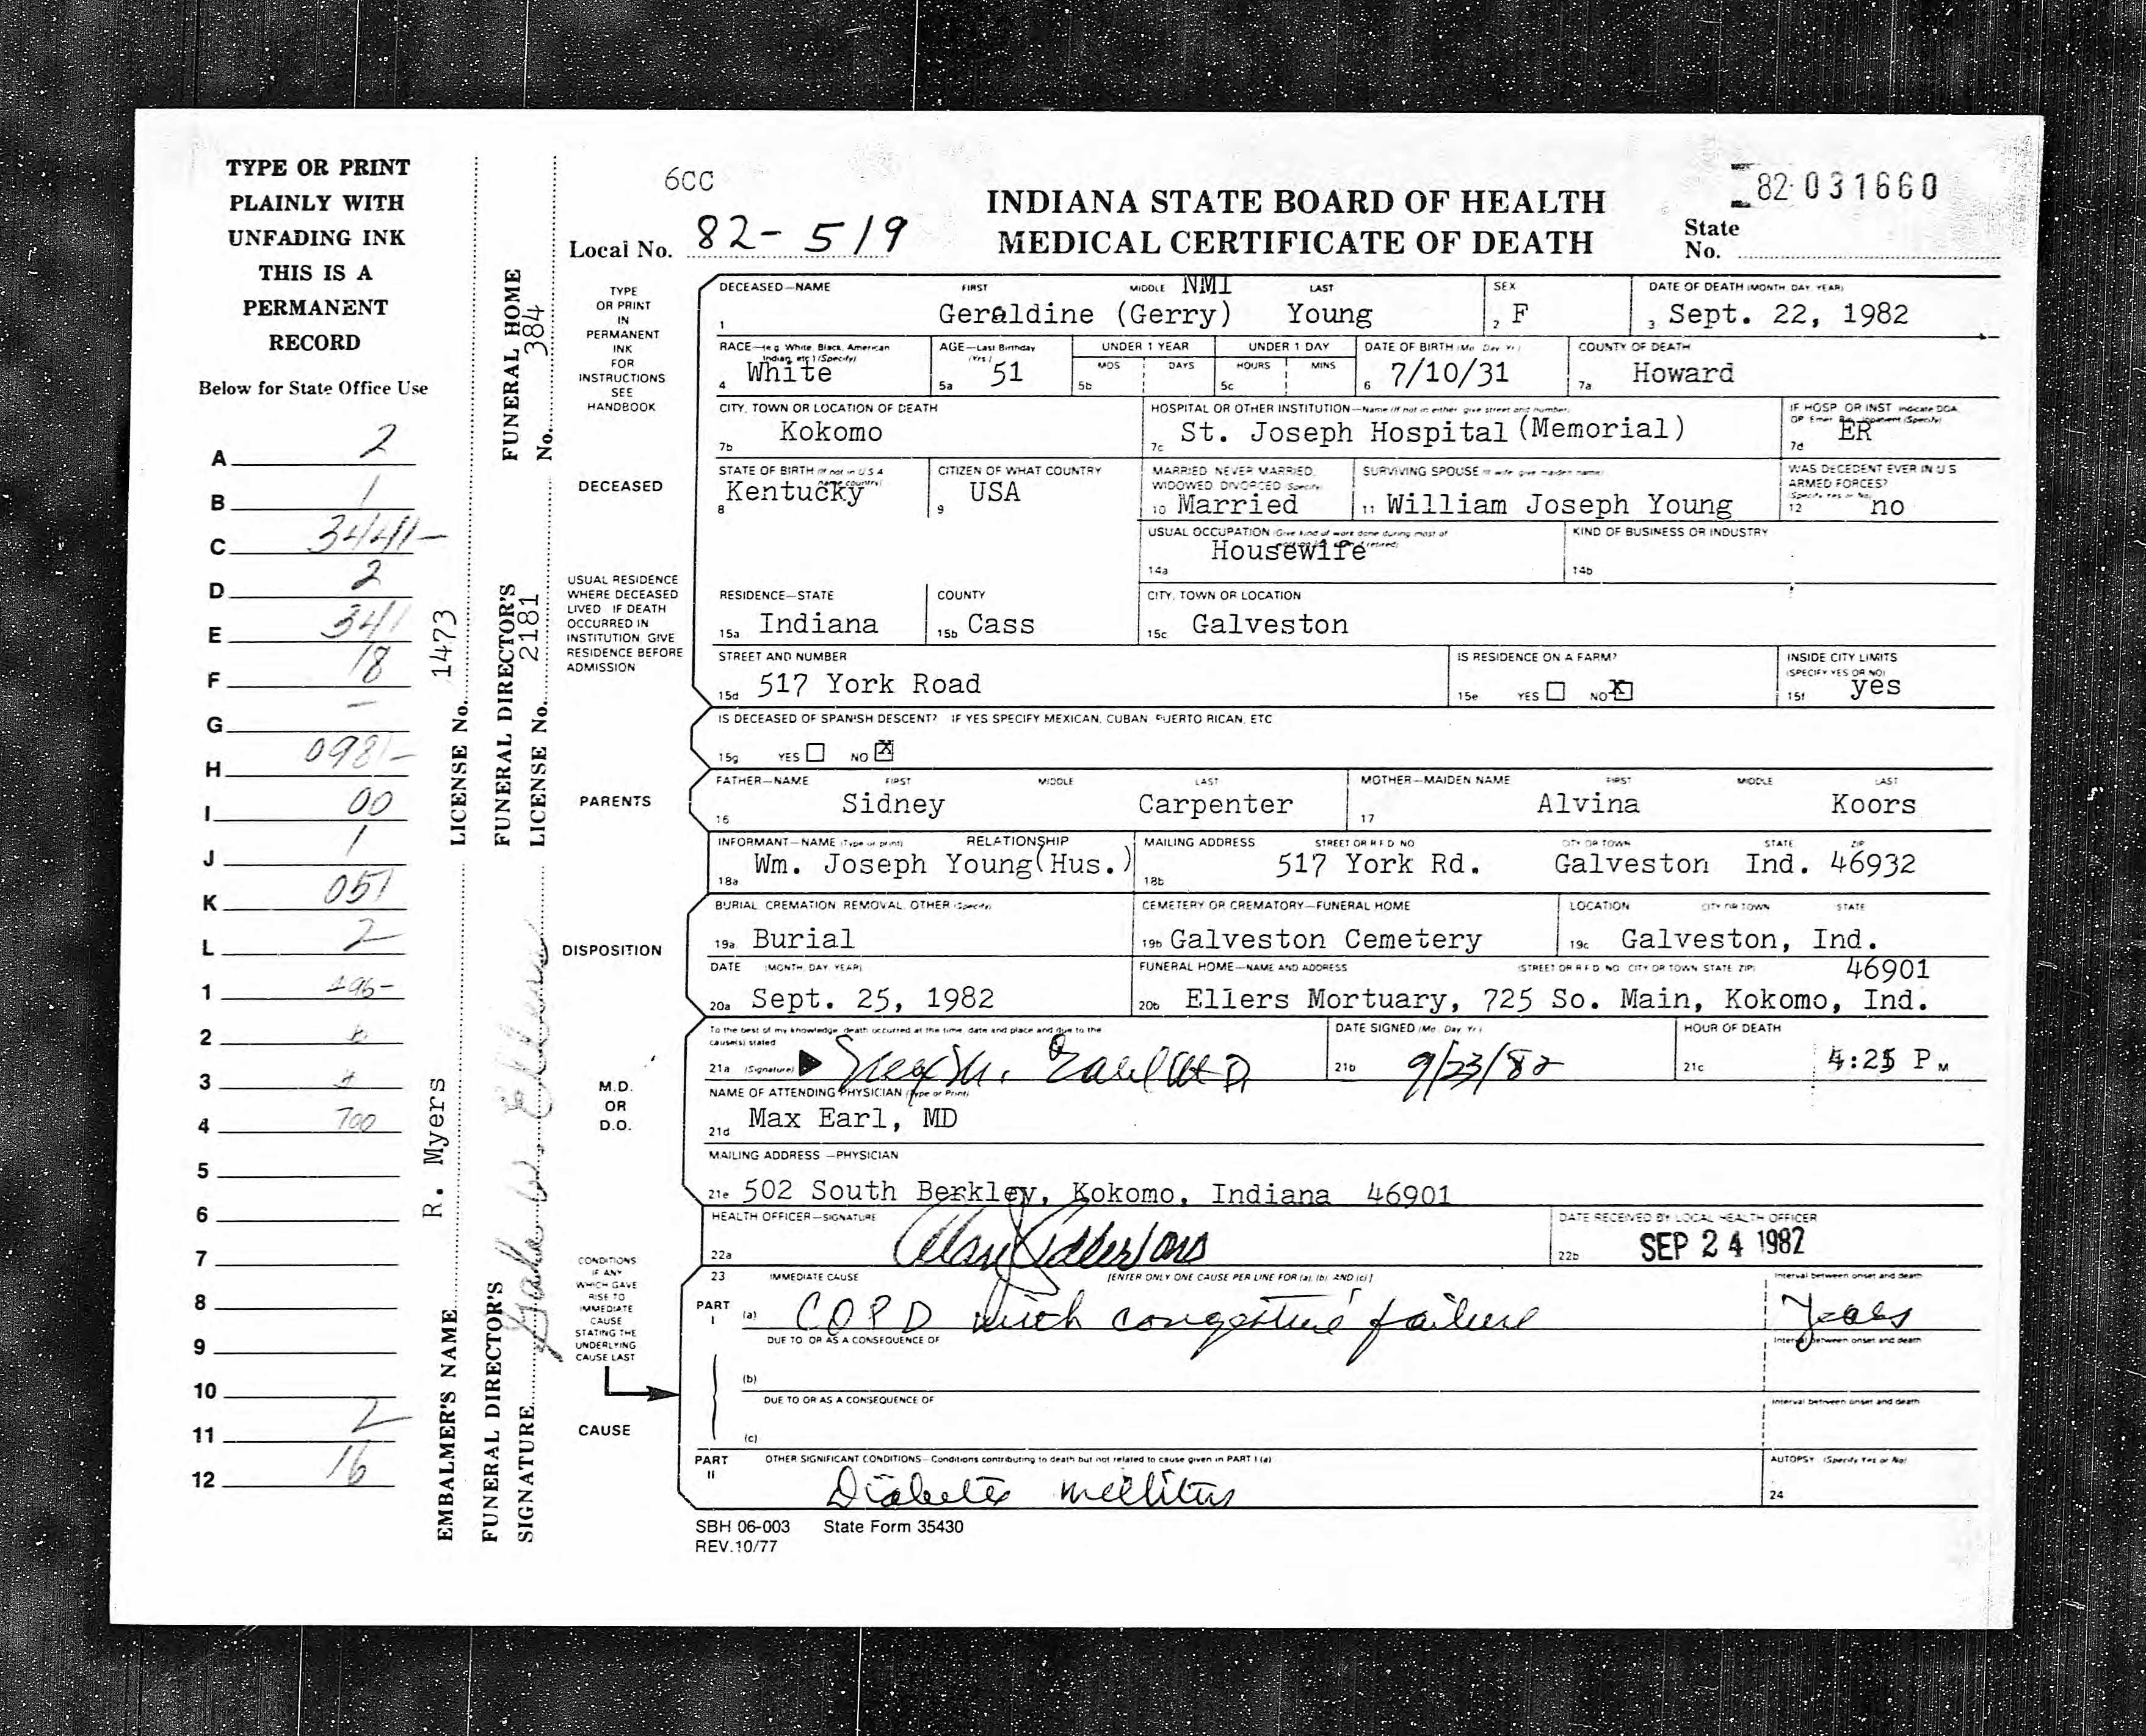 TYPE OR PRINT
PLAINLY WITH
UNFADING INK
THIS IS A
PERMANENT
RECORD
Below for State Office Use
A 2
B 1
C 3441-
D 2
E 341
F 18
G -
H 098-
I 00
J 1
K 051
L 2
1 496-
2
3
4 700
5
6
7
8
9
10
11 2
12 16
EMBALMER'S NAME R. Myers LICENSE No. 1473
FUNERAL DIRECTOR'S SIGNATURE
FUNERAL DIRECTOR'S LICENSE No. 2181
FUNERAL HOME No. 384
6CC
Local No. 82-519
INDIANA STATE BOARD OF HEALTH
MEDICAL CERTIFICATE OF DEATH
82-031660
State
No.
TYPE
OR PRINT
IN
PERMANENT
INK
FOR
INSTRUCTIONS
SEE
HANDBOOK
DECEASED—NAME FIRST MIDDLE NMI LAST SEX DATE OF DEATH (MONTH, DAY, YEAR)
1 Geraldine (Gerry) Young 2 F 3 Sept. 22, 1982
RACE—(e.g. White, Black, American Indian, etc.) (Specify) AGE—Last Birthday (Yrs.) UNDER 1 YEAR UNDER 1 DAY DATE OF BIRTH (Mo. Day Yr.) COUNTY OF DEATH
MOS DAYS HOURS MINS
4 White 5a 51 5b 5c 6 7/10/31 7a Howard
CITY, TOWN OR LOCATION OF DEATH HOSPITAL OR OTHER INSTITUTION—Name (If not in either give street and number) IF HOSP OR INST Indicate DOA,
7b Kokomo 7c St. Joseph Hospital (Memorial) 7d ER
DECEASED
STATE OF BIRTH (If not in U.S.A. name country) CITIZEN OF WHAT COUNTRY MARRIED, NEVER MARRIED, WIDOWED, DIVORCED (Specify) SURVIVING SPOUSE (If wife give maiden name) WAS DECEDENT EVER IN U S ARMED FORCES? (Specify Yes or No)
8 Kentucky 9 USA 10 Married 11 William Joseph Young 12 no
USUAL OCCUPATION (Give kind of work done during most of KIND OF BUSINESS OR INDUSTRY
14a Housewife 14b
USUAL RESIDENCE
WHERE DECEASED
LIVED IF DEATH
OCCURRED IN
INSTITUTION, GIVE
RESIDENCE BEFORE
ADMISSION
RESIDENCE—STATE COUNTY CITY, TOWN OR LOCATION
15a Indiana 15b Cass 15c Galveston
STREET AND NUMBER IS RESIDENCE ON A FARM? INSIDE CITY LIMITS (SPECIFY YES OR NO)
15d 517 York Road 15e YES NO X 15f yes
IS DECEASED OF SPANISH DESCENT? IF YES SPECIFY MEXICAN, CUBAN, PUERTO RICAN, ETC
15g YES NO X
PARENTS
FATHER—NAME FIRST MIDDLE LAST MOTHER—MAIDEN NAME FIRST MIDDLE LAST
16 Sidney Carpenter 17 Alvina Koors
INFORMANT—NAME (Type or print) RELATIONSHIP MAILING ADDRESS STREET OR R F D NO CITY OR TOWN STATE ZIP
18a Wm. Joseph Young(Hus.) 18b 517 York Rd. Galveston Ind. 46932
DISPOSITION
BURIAL, CREMATION, REMOVAL, OTHER (Specify) CEMETERY OR CREMATORY—FUNERAL HOME LOCATION CITY OR TOWN STATE
19a Burial 19b Galveston Cemetery 19c Galveston, Ind.
DATE (MONTH, DAY, YEAR) FUNERAL HOME—NAME AND ADDRESS (STREET OR R F D NO CITY OR TOWN STATE ZIP) 46901
20a Sept. 25, 1982 20b Ellers Mortuary, 725 So. Main, Kokomo, Ind.
M.D.
OR
D.O.
To the best of my knowledge, death occurred at the time, date and place and due to the
cause(s) stated DATE SIGNED (Mo. Day Yr.) HOUR OF DEATH
21a (Signature) 21b 9/23/82 21c 4:25 P M
NAME OF ATTENDING PHYSICIAN (Type or Print)
21d Max Earl, MD
MAILING ADDRESS —PHYSICIAN
21e 502 South Berkley, Kokomo, Indiana 46901
HEALTH OFFICER—SIGNATURE DATE RECEIVED BY LOCAL HEALTH OFFICER
22a 22b SEP 24 1982
CONDITIONS
IF ANY
WHICH GAVE
RISE TO
IMMEDIATE
CAUSE
STATING THE
UNDERLYING
CAUSE LAST
CAUSE
23 IMMEDIATE CAUSE [ENTER ONLY ONE CAUSE PER LINE FOR (a), (b), AND (c)] Interval between onset and death
PART I (a) COPD with congestive failure Years
DUE TO OR AS A CONSEQUENCE OF Interval between onset and death
(b)
DUE TO OR AS A CONSEQUENCE OF Interval between onset and death
(c)
PART II OTHER SIGNIFICANT CONDITIONS—Conditions contributing to death but not related to cause given in PART I (a) AUTOPSY (Specify Yes or No)
Diabetes mellitus 24
SBH 06-003 State Form 35430
REV.10/77